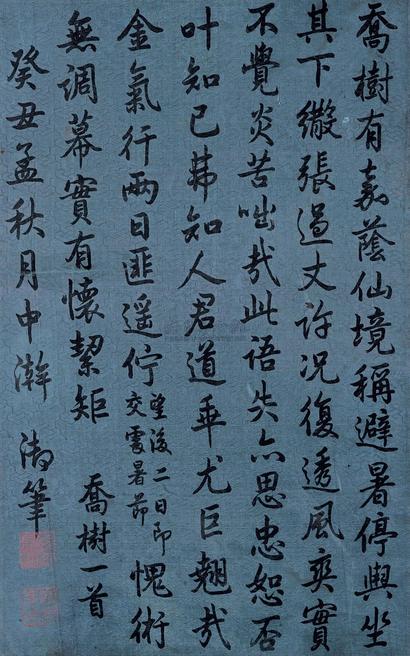 喬樹有嘉蔭仙境稱避暑停輿坐
其下繖張過丈許況復透風爽實
不覺炎苦咄哉此語失亦思忠恕否
叶知己弗知人君道乖尤巨翹哉
金氣行兩日匪遥佇望後二日即交處暑節愧術
無調幕實有懷絜矩 喬樹一首
癸丑孟秋月中澣 御筆